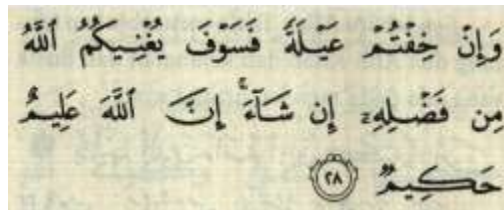 وَإِنْ خِفْتُمْ عَيْلَةً فَسَوْفَ يُغْنِيكُمُ ٱللَّهُ
مِن فَضْلِهِۦٓ إِن شَآءَ ۚ إِنَّ ٱللَّهَ عَلِيمٌ
حَكِيمٌ ٢٨